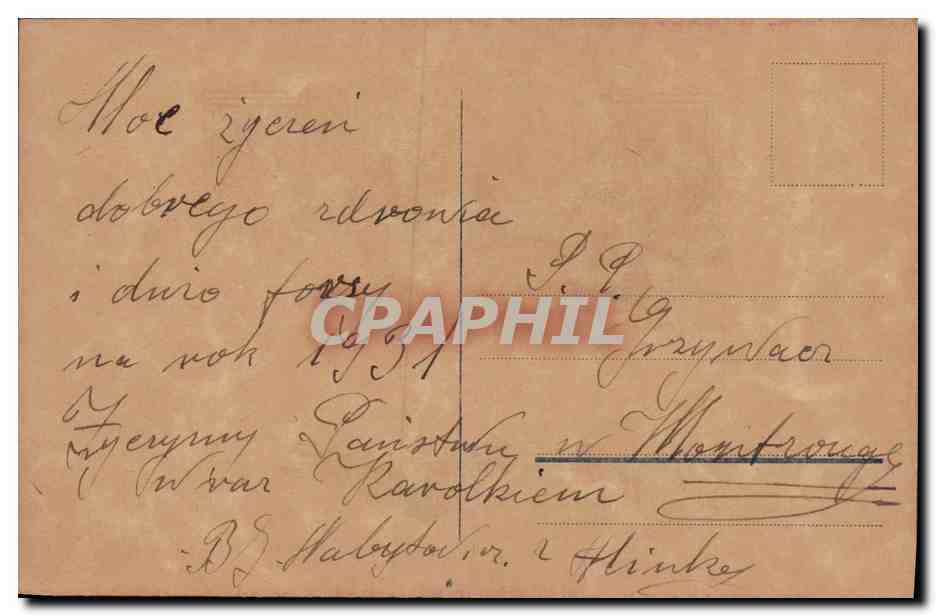 Moc życzeń
dobrego zdrowia
i dużo forsy
na rok 1931
Życzymy Państwu
wraz Karolkiem
P. P.
Grzywacz
w Montrouge
CPAPHIL